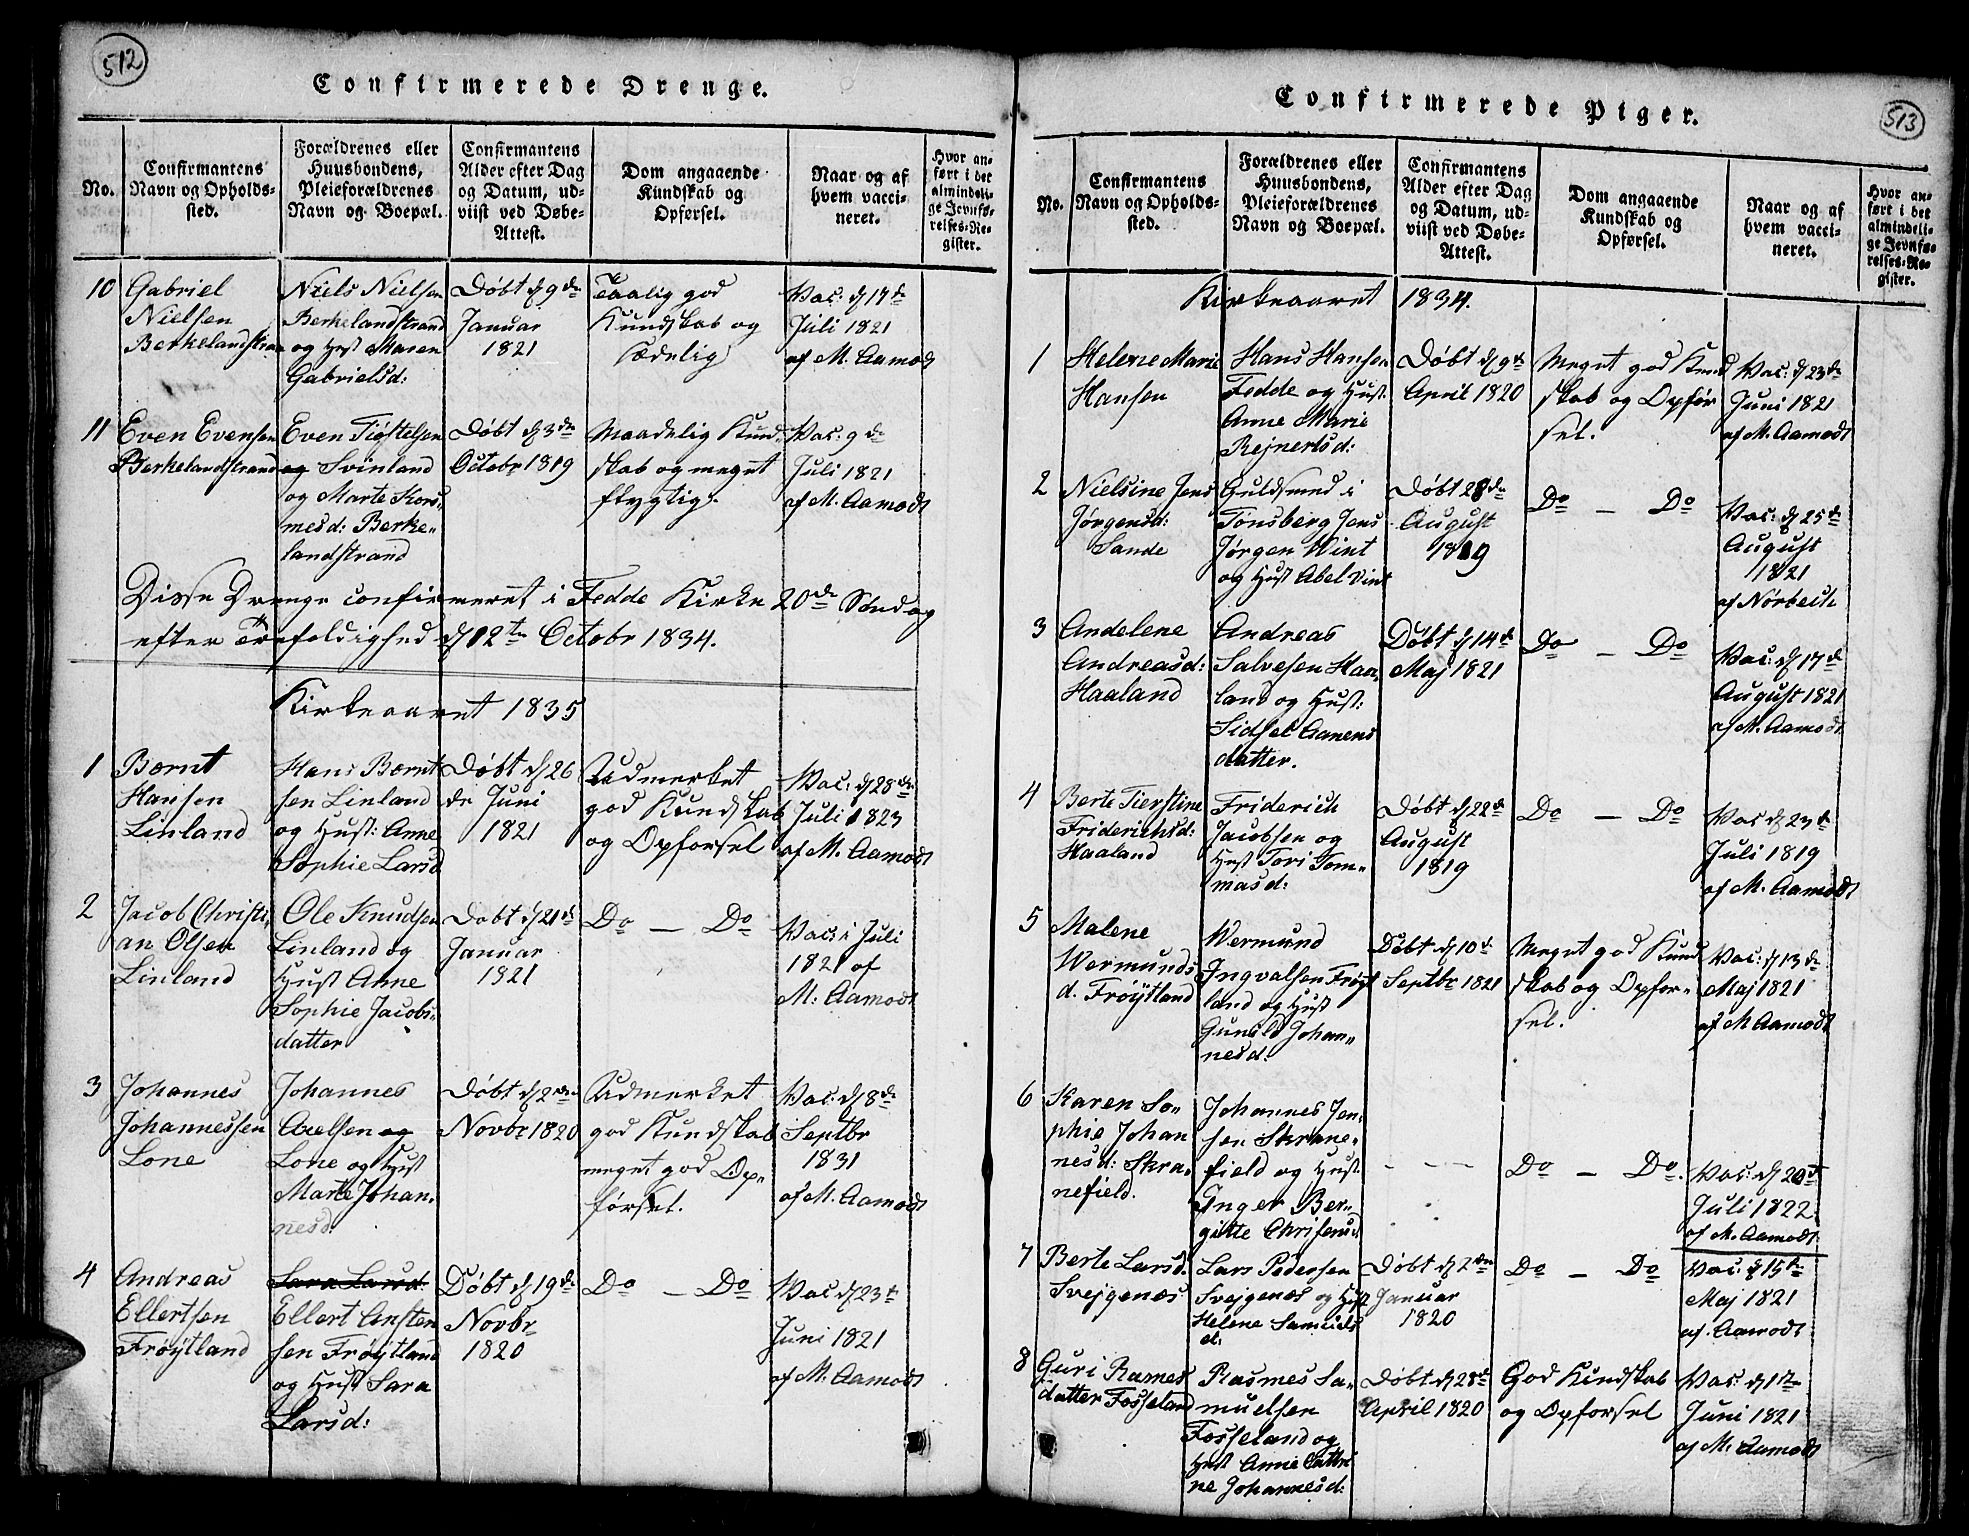 512
Confirmerede Drenge.
No.
Confirmantens
Navn og Opholds-
sted.
Forældrenes eller
Huusbondens,
Pleieforældrenes
Navn og Boepæl.
Confirmantens
Alder efter Dag
og Datum, ud-
viist ved Døbe-
Attest.
Dom angaaende
Kundskab og
Opførsel.
Naar og af
hvem vacci-
neret.
Hvor an-
ført i det
almindeli-
ge Jevnfø-
relses-Re-
gister.
10
Gabriel
Nielsen
Berkelandstran
Niels Nielsen
Berkelandstrand
og Hust Maren
Gabrielsd:
Døbt d 9de
Januar
1821
Taalig god
Kundskab og
sædelig
Vac: d 17de
Juli 1821
af M. Aamodt
11
Even Evensen
Berkelandstrand
Even Tiøstelsen
og Svinland
og Marte Kors„
mesd: Berke„
landstrand
Døbt d 3die
Octobr 1819
Maadelig Kund„
skab og meget
flygtig.
Vac: 9de
Juli 1821
af M. Aamodt
Disse Drenge confirmeret i Fedde Kirke 20de Søndag
efter Trefoldighed d 12te Octobr 1834.
Kirkeaaret 1835
1
Bærnt
Hansen
Linland
Hans Bærnt
sen Linland
og Hust: Anne
Sophie Larsd
Døbt d 26
de Juni
1821
Udmerket
god Kundskab
og Opforsel
Vac: d 28de
Juli 1823
af M. Aamodt
2
Jacob Christi
an Olsen
Linland
Ole Knudsen
Linland og
Hust Anne
Sophie Jacobs„
datter
Dobt d 21de
Januar
1821
Do — Do
Vac: i Juli
1821 af
M: Aamodt
3
Johannes
Johannessen
Lone
Johannes
Axelsen og
Lone og Hust
Marte Johan„
nesd
Døbt d 2den
Novbr 1820
Udmerket
god Kundskab
meget god Op„
førsel.
Vac: d 8de
Septbr
1831
af M. Aamodt
4
Andreas
Ellertsen
Frøÿtland
Sara Larsd:
Ellert Ansten
sen Frøÿtland
og Hust Sara
Larsd:
Døbt d 19de
Novbr
1820
Do — Do
Vac: d 23de
Juni 1821
af M. Aamodt
513
Confirmerede Piger.
No.
Confirmantens
Navn og Opholds-
sted.
Forældrenes eller
Huusbondens,
Pleieforældrenes
Navn og Boepæl.
Confirmantens
Alder efter Dag
og Datum, ud-
viist ved Døbe-
Attest.
Dom angaaende
Kundskab og
Opførsel.
Naar og af
hvem vacci-
neret.
Hvor an-
ført i det
almindeli-
ge Jevnfø-
relses-Re-
gister.
Kirkeaaret 1834.
1
Helene Marie
Hansen
Hans Hansen
Fedde og Hust
Anne Marie
Rejnertsd:
Døbt d 9de
April 1820
Meget god Kund
skab og Opfør
sel.
Vac: d 23de
Juni 1821
af M. Aamodt
2
Nielsine Jens
Jørgensd:
Sande
Guldsmed i
Tonsberg Jens
Jørgen Wint
og Hust Abel Vint
Døbt 28de
August
1819
Do — Do
Vac: d 25de
August
1821
af Nørbech
3
Andelene
Andreasd:
Haaland
Andreas
Salvesen Haa„
land og Hust:
Sidsel Aanens
datter.
Døbt d 14de
Maj 1821
Do — Do
Vac: d 17de
August 1821
af M. Aamodt
4
Berte Tierstine
Friderichsd:
Haaland
Friderich
Jacobsen og
Hust Tori Tom„
masd:
Døbt d 22de
August
1819
Do — Do
Vac d 23de
Juli 1819
af M. Aamodt
5
Malene
Wermunds
d. Frøÿtland
Wermund
Ingvalsen Frøÿt
land og Hust
Gunild Johan„
nesd:
Døbt d 10de
Septbr 1821
Meget god Kund
skab og Opfor„
sel.
Vac: d 13de
Maj 1821
af M Aamodt
6
Karen So„
phie Johan
nesd: Skra„
nefield.
Johannes Jen„
sen Skrane„
field og Hust
Inger Ber„
gitte Chrisensd
— — —
Do — Do.
Vac: d 20de
Juli 1822
af M. Aamodt
7
Berte Larsd.
Svejgenæs
Lars Pedersen
Svejgenæs og Hust
Helene Samuels
d:
Døbt d 2den
Januar
1820
Do — Do
Vac: d 15de
Maj 1821
af. Aamodt
8
Guri Rames
datter Fosseland
Rasmes Sa„
muelsen
Fosseland og
Hust Anne Cathri
ne Johannesd:
Døbt d 28de
April 1820
God Kundskab
og Opforsel
Vac: d 1ste
Juni 1821
af M. Aamodt